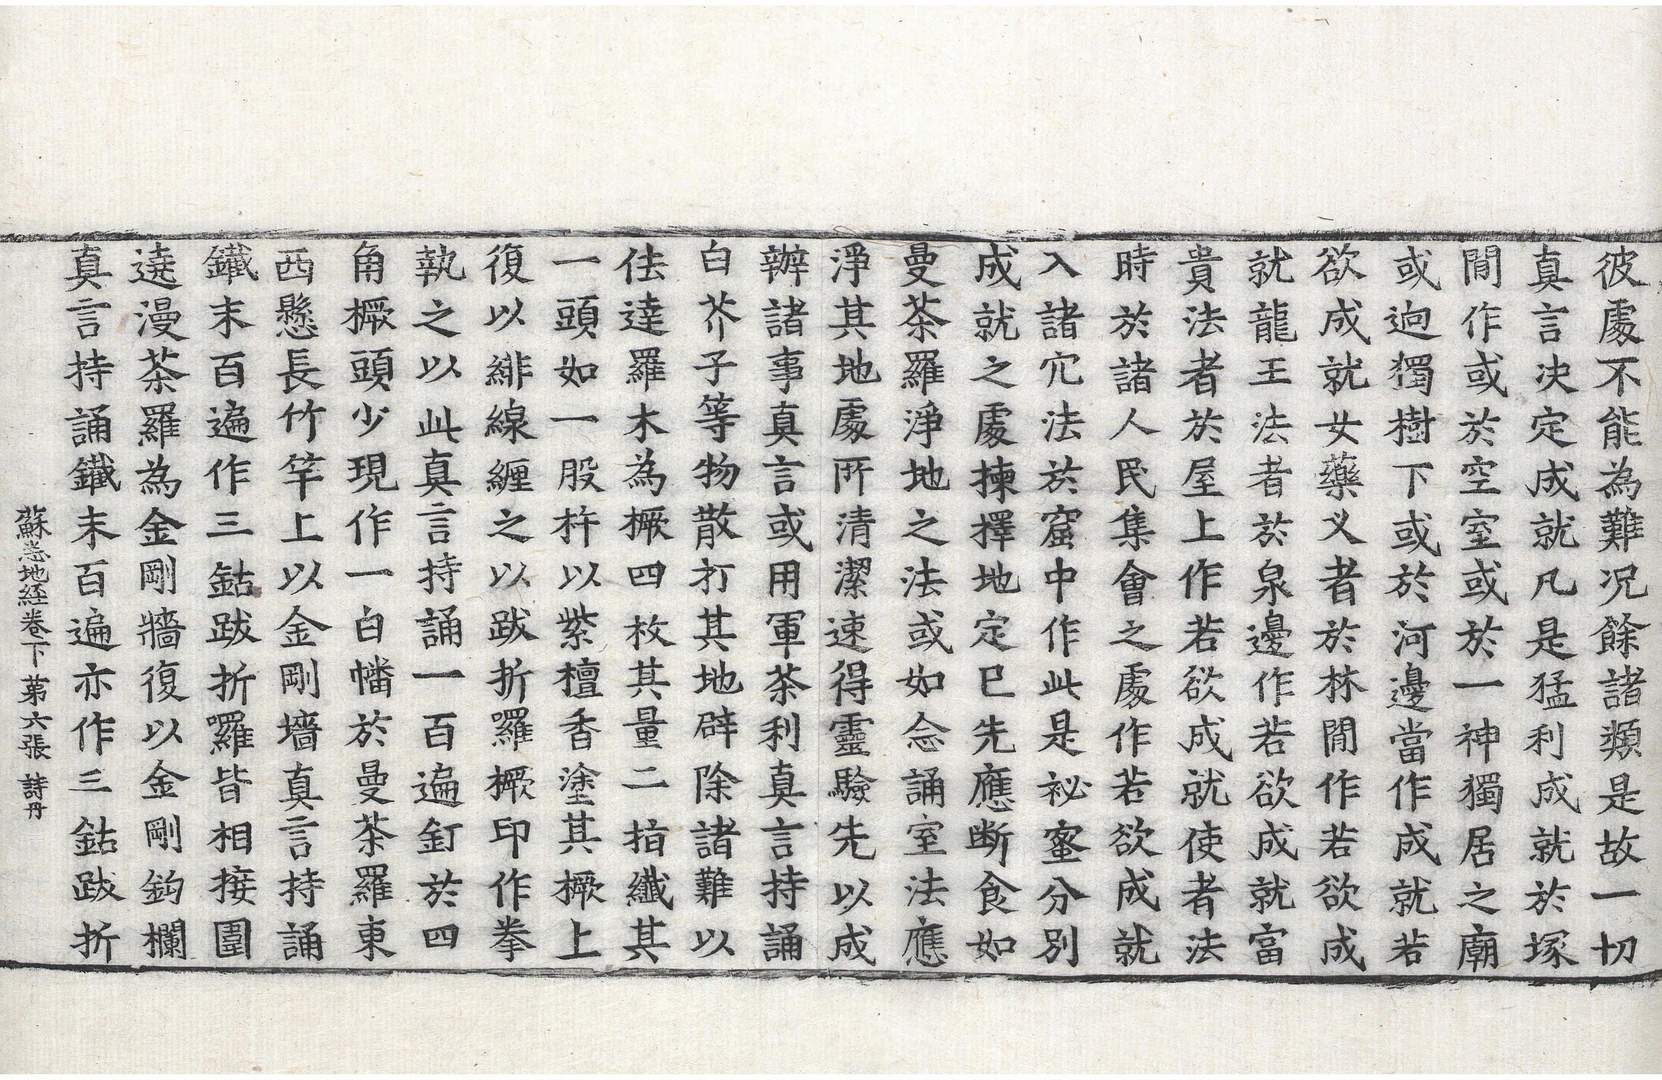 彼處不能為難况餘諸類是故一切
真言决定成就凡是猛利成就於塚
間作或於空室或於一神獨居之廟
或逈獨樹下或於河邊當作成就若
欲成就女藥义者於林間作若欲成
就龍王法者於泉邊作若欲成就富
貴法者於屋上作若欲成就使者法
時於諸人民集會之處作若欲成就
入諸穴法於窟中作此是祕蜜分別
成就之處揀擇地定巳先應断食如
曼荼羅淨地之法或如念誦室法應
淨其地處所清潔速得靈驗先以成
辦諸事真言或用軍荼利真言持誦
白芥子等物散打其地辟除諸難以
佉達羅木為橛四枚其量二指纖其
一頭如一股杵以紫檀香塗其橛上
復以緋線纏之以跋折囉橛印作拳
執之以此真言持誦一百遍釘於四
角橛頭少現作一白幡於曼荼羅東
西懸長竹竿上以金剛墻真言持誦
鐵末百遍作三鈷跋折囉皆相接圍
遶漫荼羅為金剛牆復以金剛鈎欄
真言持誦鐵末百遍亦作三鈷跋折
蘇悉地経卷下 苐六張 詩丹